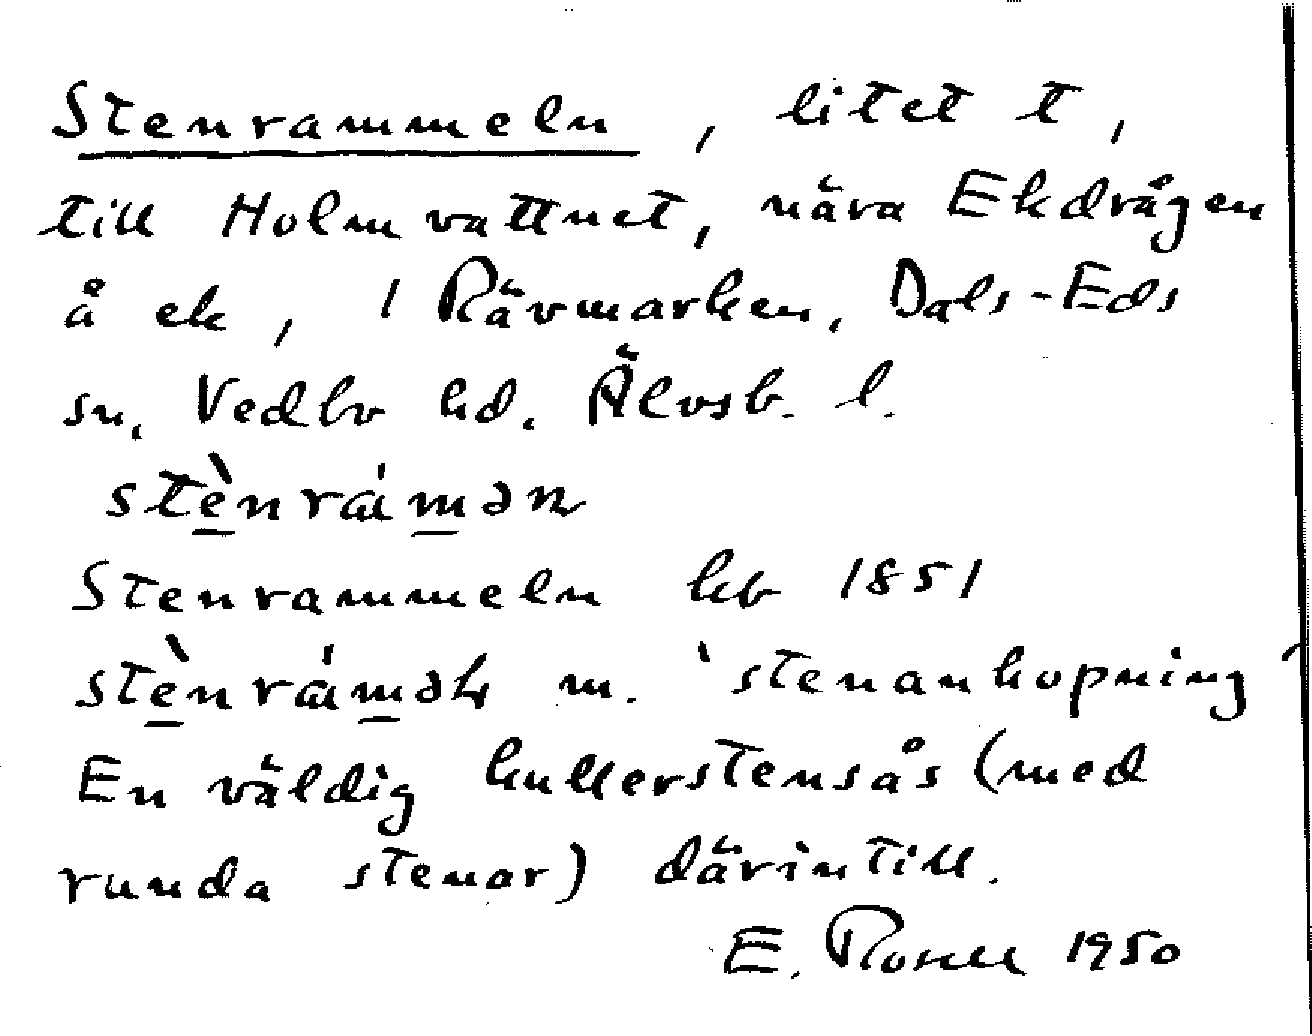 Stenrammeln, litet t,
till Holmvattnet, nära Ekdrågen
å ek, 1 Rävmarken, Dals-Eds
sn, Vedbo hd. Älvsb. l.
stènráman
Stenrammeln kb 1851
m. 'stenanhopning'
En väldig kullerstensås (med
runda stenar) därintill.
E. Rosell 1950